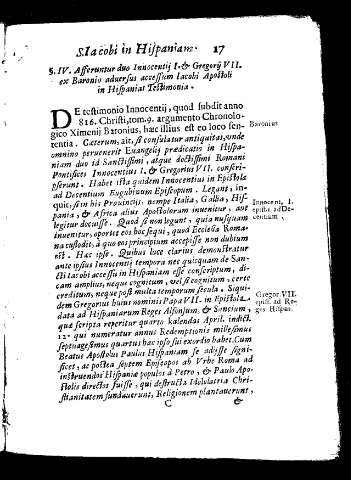 S. Iacobi in Hispaniam. 17
§. IV. Asseruntur duo Innocentij I. & Gregorij VII.
ex Baronio adversus accessum Iacobi Apostoli
in Hispanias Testimonia.
DE testimonio Innocentij, quod subdit anno
816. Christi, tom. 9. argumento Chronolo-
gico Ximenij Baronius, hæc illius est eo loco sen-
tentia. Cæterum, ait, si consulatur antiquitas, onde
omnino peruenerit Euangelij prædicatio in Hispa-
niam duo id Sanctissimi, atque doctissimi Romani
Pontifices Innocentius I. & Gregorius VII. conscri-
pserunt. Habet ista quidem Innocentius in Epistola
ad Decentium Eugubinum Episcopum. Legant, in-
quit, si in his Prouincijs, nempe Italia, Gallia, His-
pania, & Africa alius Apostolorum inuenitur, aut
legitur docuisse. Quod si non legunt, quia nusquam
inuenitur, oportet eos hoc sequi, quod Ecclesia Roma-
na custodit, à quo eos principium accepisse non dubium
est. Hac ipse. Quibus luce clarius demonstratur
ante ipsius Innocentij tempora nec quicquam de San-
cti Iacobi accessu in Hispaniam esse conscriptum, di-
cam amplius, neque cognitum, vel si cognitum, certè
creditum, neque post multa temporum secula. Siqui-
dem Gregorius huius nominis Papa VII. in Epistola
data ad Hispaniarum Reges Alfonsum, & Sancium,
quæ scripta reperitur quarto kalendas April. indict.
12. qui numeratur annus Redemptionis millesimus
septuagesimus quartus hac ipso sui exordio habet. Cum
Beatus Apostolus Paulus Hispaniam se adisse signi-
ficet, ac postea septem Episcopos ab Vrbe Roma ad
instruendos Hispaniæ populos à Petro, & Paulo Apo-
stolis directos fuisse, qui destructa Idololatria Chri-
stianitatem fundauerunt, Religionem plantauerunt,
C &
Baronius
Innocent. I.
epist. ad De-
centium.
Gregor. VII.
epist. ad Re-
ges Hispan.